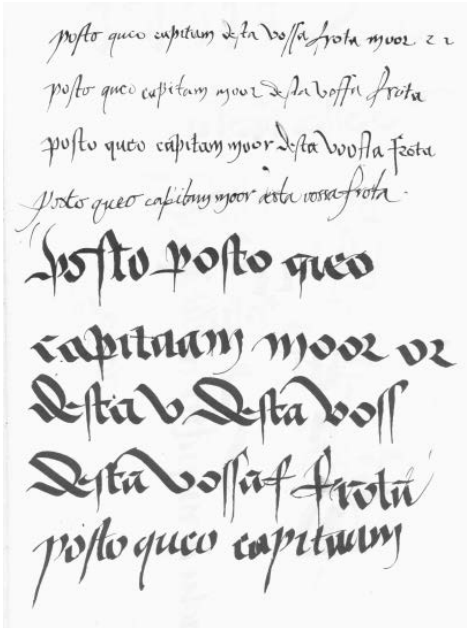 posto queo capitam desta vossa frota moor 2 2
posto queo capitam moor desta vossa frota
posto queo capitam moor desta vossa frota
posto queo capitam moor desta vossa frota
posto posto queo
capitaam moor or
desta v desta voss
desta vossa f frota
posto queo capitaam